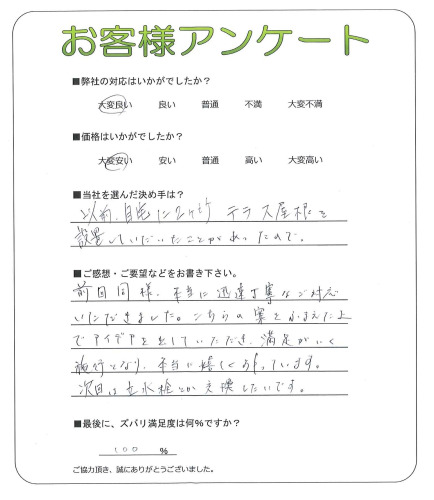 お客様アンケート
■弊社の対応はいかがでしたか？
大変良い 良い 普通 不満 大変不満
■価格はいかがでしたか？
大変安い 安い 普通 高い 大変高い
■当社を選んだ決め手は？
以前、自宅に テラス屋根を
設置していただいたことがあったので。
■ご感想・ご要望などをお書き下さい。
前回同様、本当に迅速丁寧なご対応
いただきました。こちらの案をふまえた上
でアイデアを出していただき、満足がいく
施行となり、本当に嬉しく思っています。
次回は立水栓とか交換したいです。
■最後に、ズバリ満足度は何%ですか？
100 %
ご協力頂き、誠にありがとうございました。